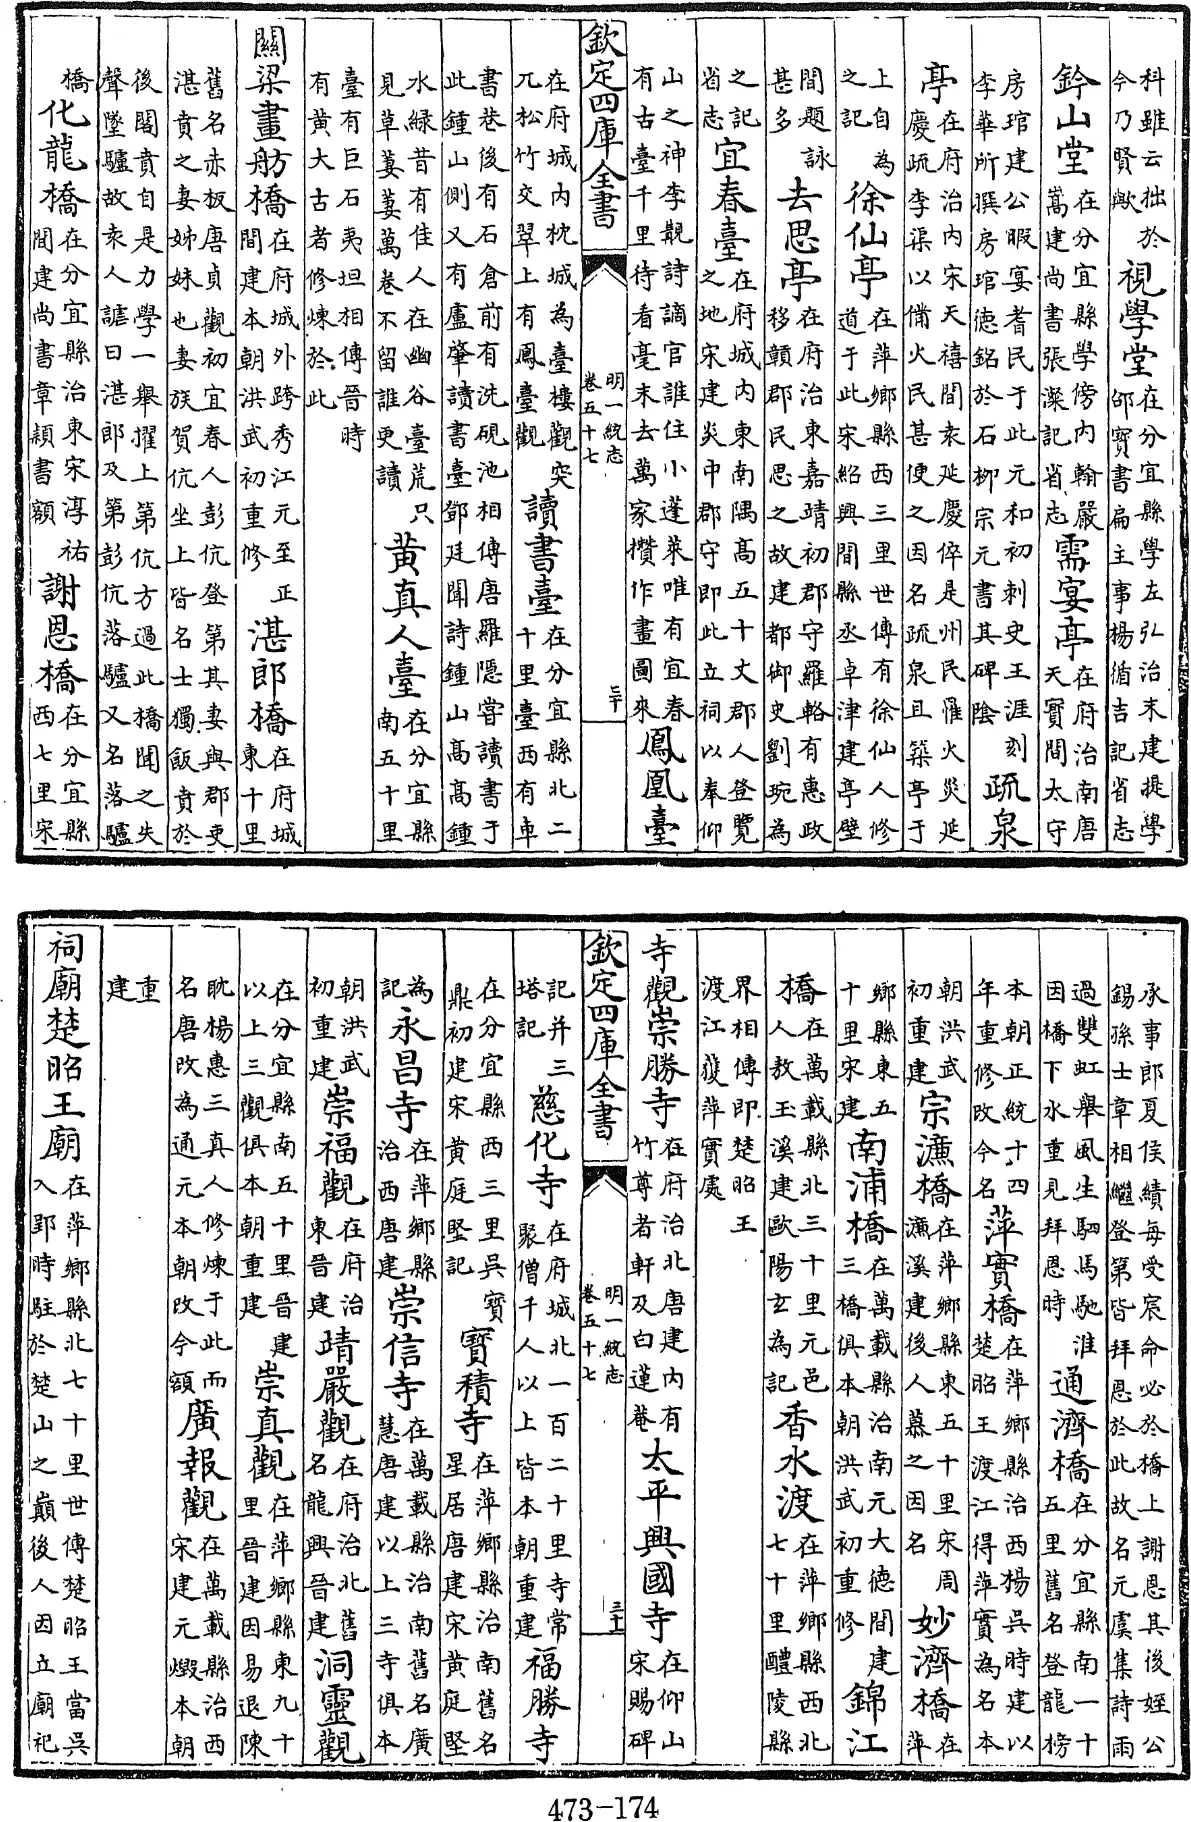 科雖云拙於今乃賢歟視學堂在分宜縣學左弘治末建提學邵寶書扁主事楊循吉記省志
鈐山堂在分宜縣學傍内翰嚴嵩建尚書張濚記省志需宴亭在府治南唐天寶間太守
房琯建公暇宴耆民于此元和初刺史王涯刻李華所撰房琯德銘於石柳宗元書其碑陰疏泉
亭在府治内宋天禧間袁延慶倅是州民罹火災延慶疏李渠以備火民甚便之因名疏泉且築亭于
上自為之記徐仙亭在萍鄉縣西三里世傳有徐仙人修道于此宋紹興間縣丞卓津建亭壁
間題詠甚多去思亭在府治東嘉靖初郡守羅輅有惠政移贑郡民思之故建都御史劉琬為
之記省志宜春臺在府城内東南隅高五十丈郡人登覽之地宋建炎中郡守即此立祠以奉仰
山之神李觀詩謫官誰住小蓬萊唯有宜春有古臺千里待看毫末去萬家攢作畫圖來鳳凰臺
欽定四庫全書 明一統志卷五十七 三十
在府城内枕城為臺樓觀突兀松竹交翠上有鳳臺觀讀書臺在分宜縣北二十里臺西有車
書巷後有石倉前有洗硯池相傳唐羅隱嘗讀書于此鍾山側又有盧肇讀書臺鄧廷聞詩鍾山高高鍾
水緑昔有佳人在幽谷臺荒只見草萋萋萬卷不留誰更讀黄真人臺在分宜縣南五十里
臺有巨石夷坦相傳晉時有黄大古者修煉於此
關梁畫舫橋在府城外跨秀江元至正間建本朝洪武初重修湛郎橋在府城東十里
舊名赤板唐貞觀初宜春人彭伉登第其妻與郡吏湛賁之妻姊妹也妻族賀伉坐上皆名士獨飯賁於
後閣賁自是力學一舉擢上第伉方過此橋聞之失聲墜驢故袁人謔曰湛郎及第彭伉落驢又名落驢
橋化龍橋在分宜縣治東宋淳祐間建尚書章頴書額謝恩橋在分宜縣西七里宋
承事郎夏侯績每受宸命必於橋上謝恩其後姪公錫孫士章相繼登第皆拜恩於此故名元虞集詩雨
過雙虹舉風生駟馬馳淮因橋下水重見拜恩時通濟橋在分宜縣南一十五里舊名登龍榜
本朝正統十四年重修改今名萍實橋在萍鄉縣治西楊吳時建以楚昭王渡江得萍實為名本
朝洪武初重建宗濂橋在萍鄉縣東五十里宋周濂溪建後人慕之因名妙濟橋在萍
鄉縣東五十里宋建南浦橋在萬載縣治南元大德間建三橋俱本朝洪武初重修錦江
橋在萬載縣北三十里元邑人敖玉溪建歐陽玄為記香水渡在萍鄉縣西北七十里醴陵縣
界相傳即楚昭王渡江獲萍實處
寺觀崇勝寺在府治北唐建内有竹尊者軒及白蓮巷太平興國寺在仰山宋賜碑
欽定四庫全書 明一統志卷五十七 三十一
記并三塔記慈化寺在府城北一百二十里寺常聚僧千人以上皆本朝重建福勝寺
在分宜縣西三里吳寶鼎初建宋黄庭堅記寶積寺在萍鄉縣治南舊名星居唐建宋黄庭堅
為記永昌寺在萍鄉縣治西唐建崇信寺在萬載縣治南舊名廣慧唐建以上三寺俱本
朝洪武初重建崇福觀在府治東晉建靖嚴觀在府治北舊名龍興晉建洞靈觀
在分宜縣南五十里晉建以上三觀俱本朝重建崇真觀在萍鄉縣東九十里晉建因易退陳
眈楊惠三真人修煉于此而名唐改為通元本朝改今額廣報觀在萬載縣治西宋建元燬本朝
重建
祠廟楚昭王廟在萍鄉縣北七十里世傳楚昭王當吳入郢時駐於楚山之巔後人因立廟祀
473-174